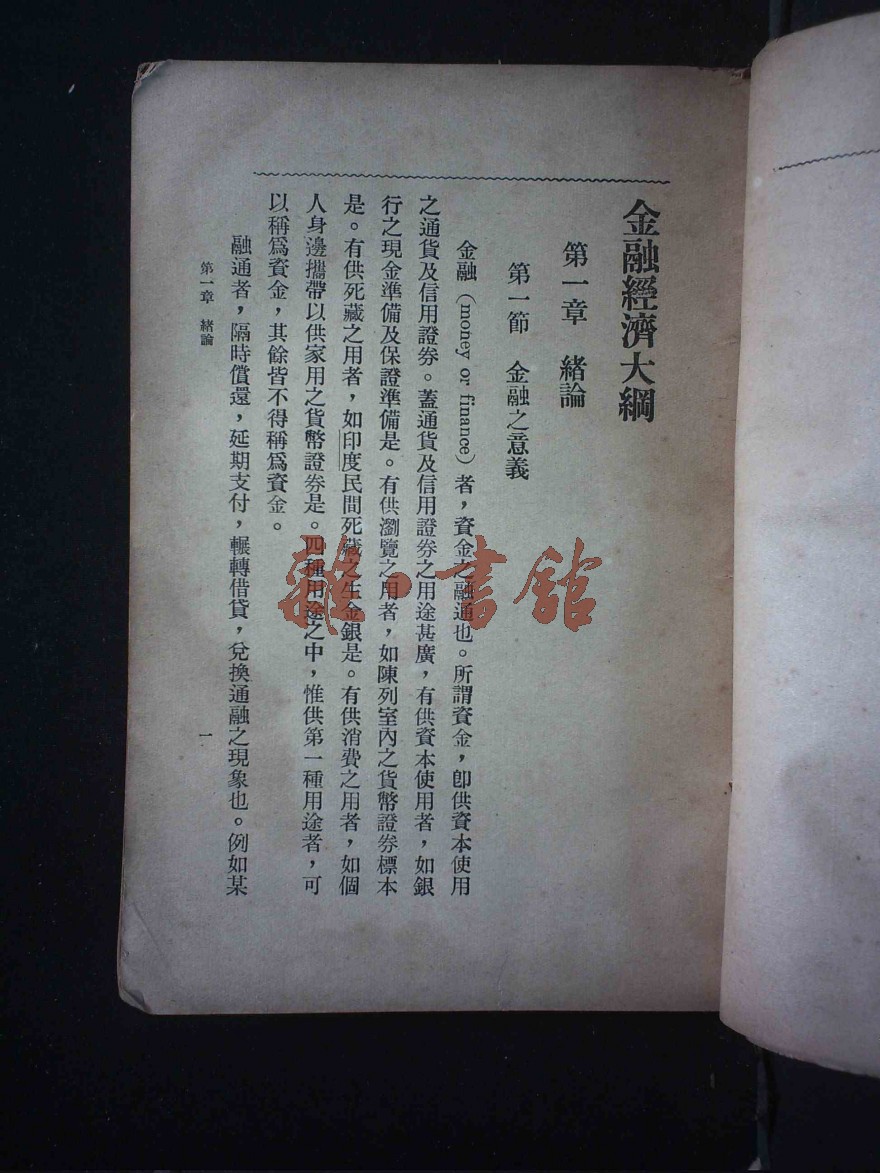 金融經濟大綱
第一章　緒論
第一節　金融之意義
金融（money or finance）者，資金之融通也。所謂資金，卽供資本使用
之通貨及信用證券。蓋通貨及信用證券之用途甚廣，有供資本使用者，如銀
行之現金準備及保證準備是。有供瀏覽之用者，如陳列室內之貨幣證券標本
是。有供死藏之用者，如印度民間死藏之生金銀是。有供消費之用者，如個
人身邊攜帶以供家用之貨幣證券是。四種用途之中，惟供第一種用途者，可
以稱爲資金，其餘皆不得稱爲資金。
融通者，隔時償還，延期支付，輾轉借貸，兌換通融之現象也。例如某
第一章　緒論
一
書館